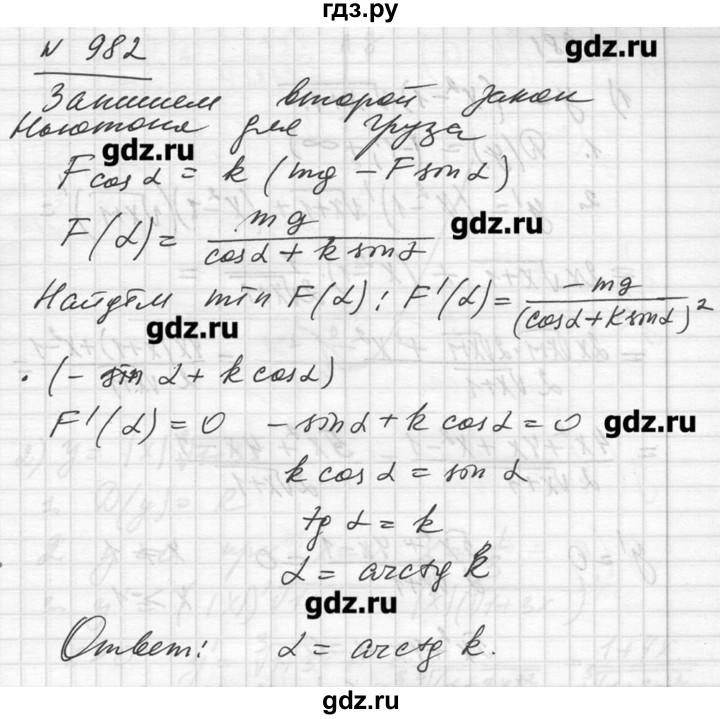 гдз.ру
N 982
gdz.ru
Запишем второй закон
Ньютона для груза
gdz.ru
F cos α = k (mg - F sin α)
F(α) = mg / (cos α + k sin α)
gdz.ru
Найдём min F(α): F'(α) = -mg / (cos α + k sin α)²
gdz.ru
· (- sin α + k cos α)
F'(α) = 0 - sin α + k cos α = 0
gdz.ru
k cos α = sin α
tg α = k
α = arctg k
gdz.ru
Ответ: α = arctg k.
gdz.ru